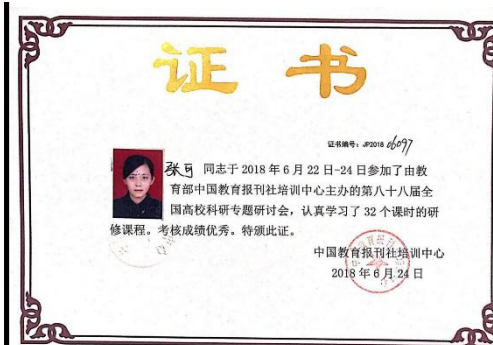 证书
证书编号：JP2018 06097
张可 同志于 2018 年 6 月 22 日-24 日参加了由教
育部中国教育报刊社培训中心主办的第八十八届全
国高校科研专题研讨会，认真学习了 32 个课时的研
修课程。考核成绩优秀。特颁此证。
中国教育报刊社培训中心
2018 年 6 月 24 日